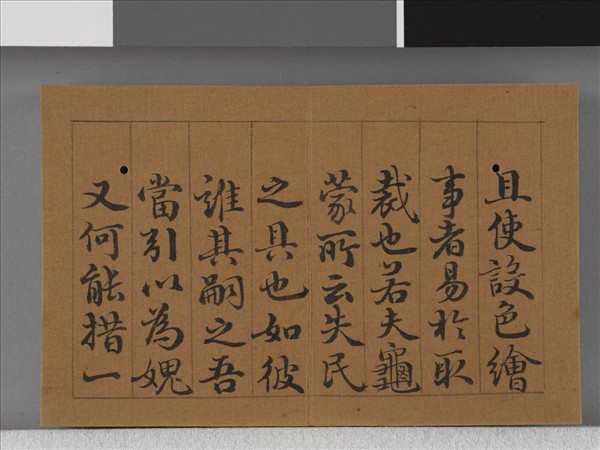 且使設色繪
事者易於取
裁也若夫龜
蒙所云失民
之具也如彼
誰其嗣之吾
當引以為媿
又何能措一